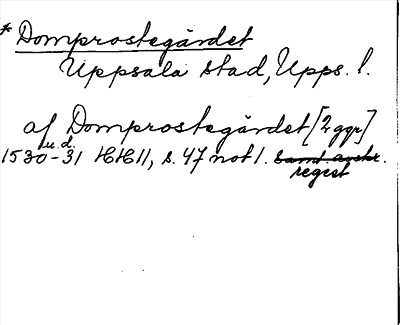 * Domprostegärdet
Uppsala stad, Upps. l.
af Domprostegärdet [2 ggr]
u.d.
1530-31 HH II, s. 47 not 1. samt. avskr.
regest